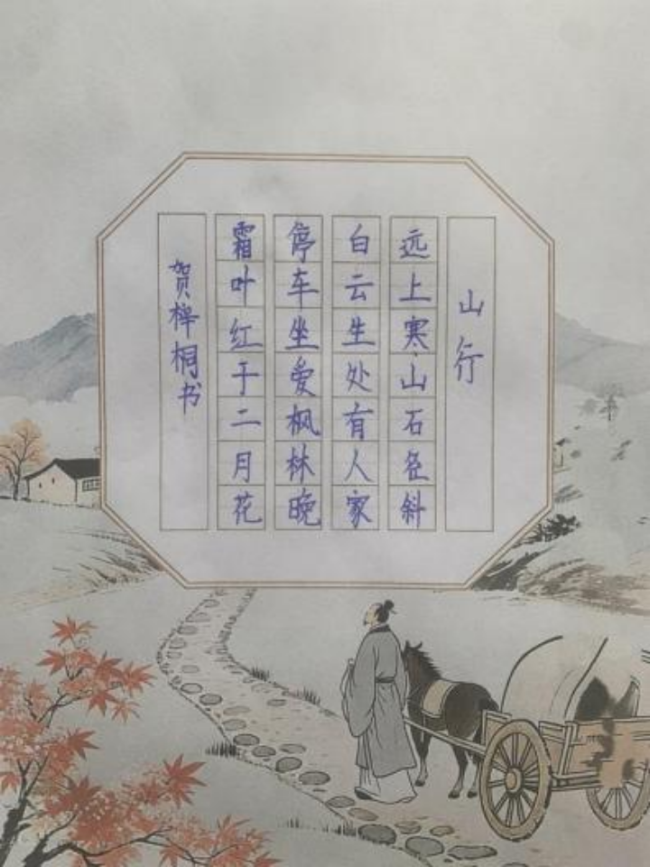 山行
远上寒山石径斜
白云生处有人家
停车坐爱枫林晚
霜叶红于二月花
贺梓桐书